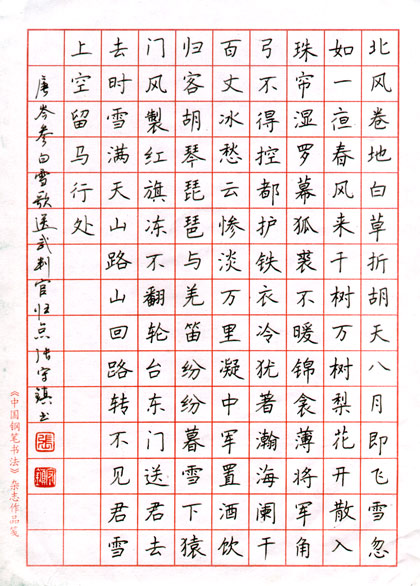 北风卷地白草折胡天八月即飞雪忽
如一亱春风来千树万树梨花开散入
珠帘湿罗幕狐裘不暖锦衾薄将军角
弓不得控都护铁衣冷犹著瀚海阑干
百丈冰愁云惨淡万里凝中军置酒饮
归客胡琴琵琶与羌笛纷纷暮雪下猿
门风製红旗冻不翻轮台东门送君去
去时雪满天山路山回路转不见君雪
上空留马行处
唐岑参白雪歌送武判官归点张宇镇书
張
《中国钢笔书法》杂志作品笺